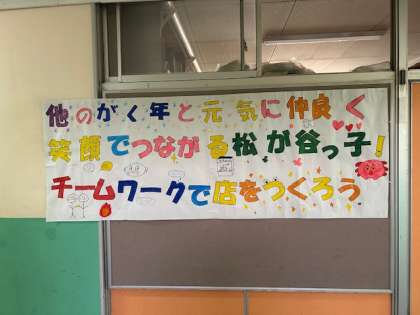 他のがく年と元気に仲良く
笑顔でつながる松が谷っ子!
チームワークで店をつくろう